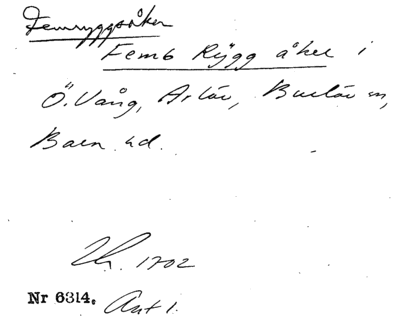 Femryggsåker
Femb Rÿgg åker i
Ö. Vång, Arlöv, Burlöv sn,
Bara hd.
1702
Nr 6314. Akt 1.